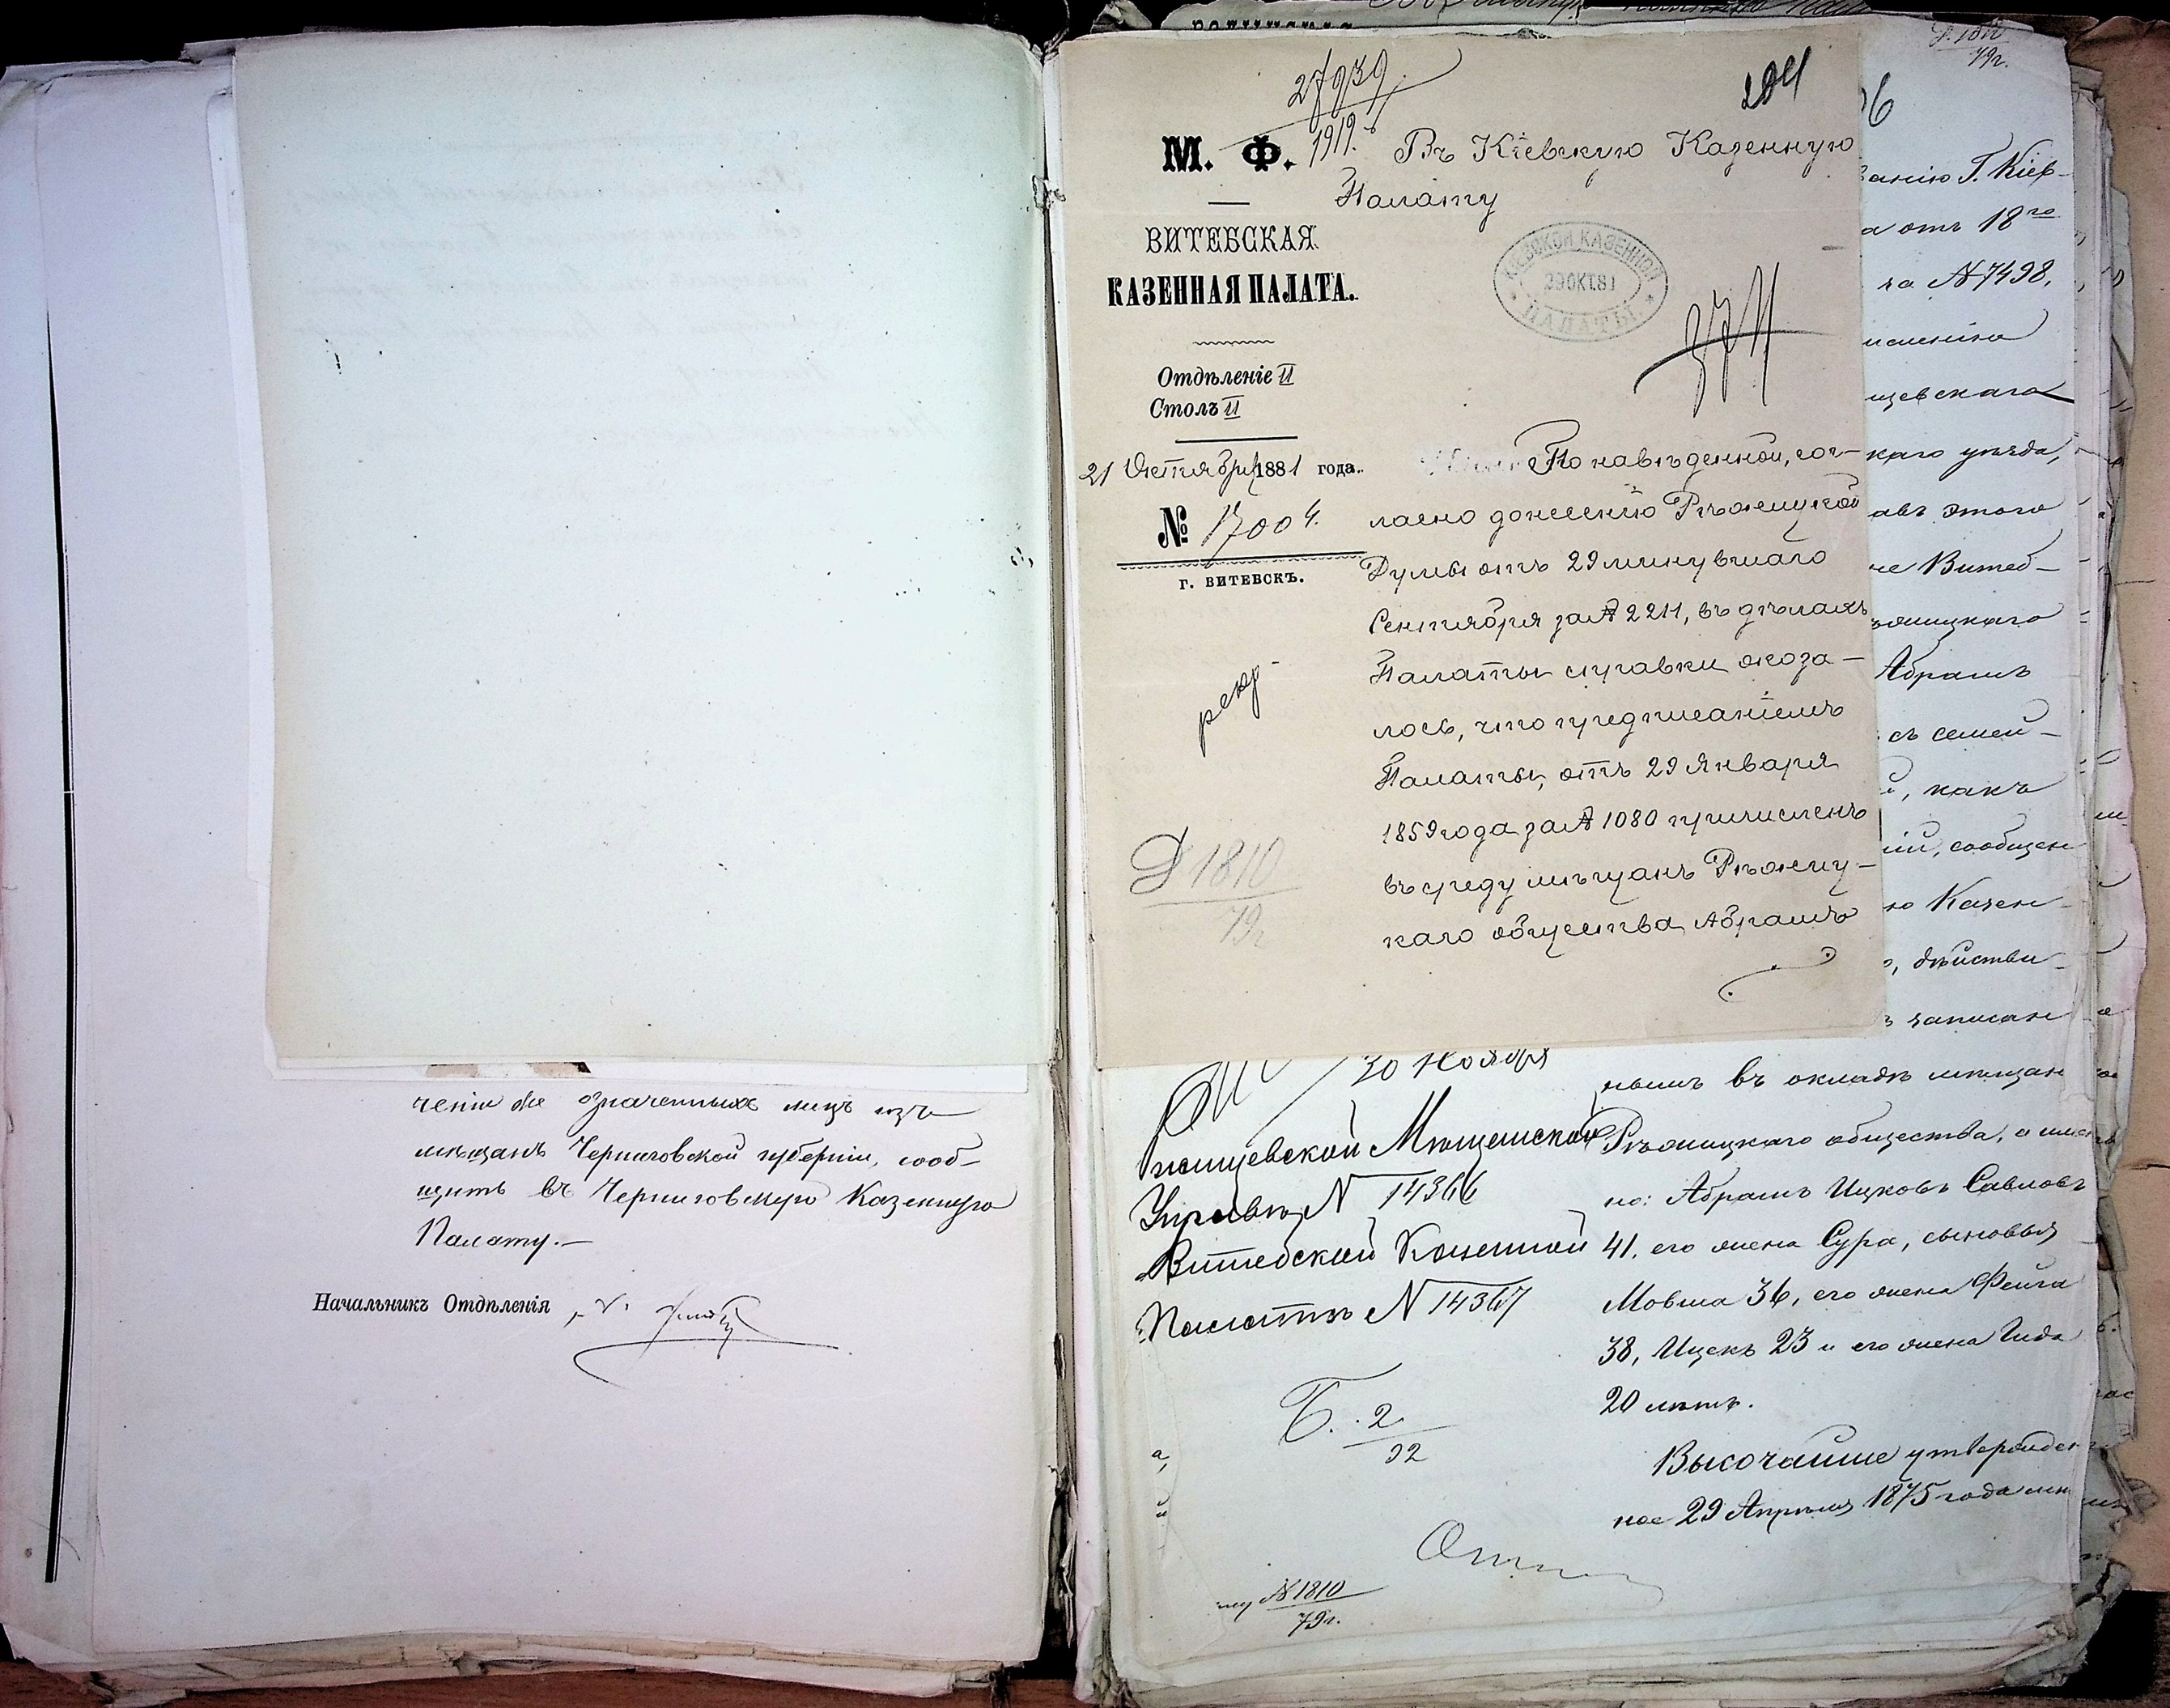 чении же означенныхъ лицъ изъ
мѣщанъ Черниговской губерніи, сооб-
щить въ Черниговскую Казенную
Палату.—
Начальникъ Отдѣленія
27939
1919.
204
М. Ф.
Въ Кіевскую Казенную
Палату
ВИТЕБСКАЯ
КАЗЕННАЯ ПАЛАТА.
КІЕВСКОЙ КАЗЕННОЙ
29 ОКТ. 81
ПАЛАТЫ
Отдѣленіе II
Столъ II
21 Октября 1881 года.
№ 17004.
г. ВИТЕБСКЪ.
По наведенной, сог-
ласно донесенію Рѣжицкой
Думы отъ 29 минувшаго
Сентября за № 2211, въ дѣлахъ
Палаты справки оказа-
лось, что предписаніемъ
Палаты, отъ 29 Января
1859 года за № 1080 причисленъ
въ среду мѣщанъ Рѣжиц-
каго общества Абрамъ
Д 1810
79г
79г.
6
ванію Г. Кіев-
а отъ 18го
за № 7498,
щевскаго
каго уѣзда,
авъ этого
не Витеб-
жицкаго
Абрамъ
съ семей-
й, какъ
ій, сообщен
ю Казен-
о, дѣйстви-
ъ записан
нымъ въ окладъ мѣщан
Рѣжицкаго общества, а имен
но: Абрамъ Ицковъ Савловъ
41, его жена Сура, сыновья
Мовша 36, его жена Фейга
38, Ицекъ 23 и его жена Гида
20 лѣтъ.
Высочайше утвержден
ное 29 Апрѣля 1875 года мн
30 Ноября
Мѣщанской
Управѣ № 14366
Витебской Казенной
Палатѣ № 14367
Б. 2
92
№ 1810
79г.